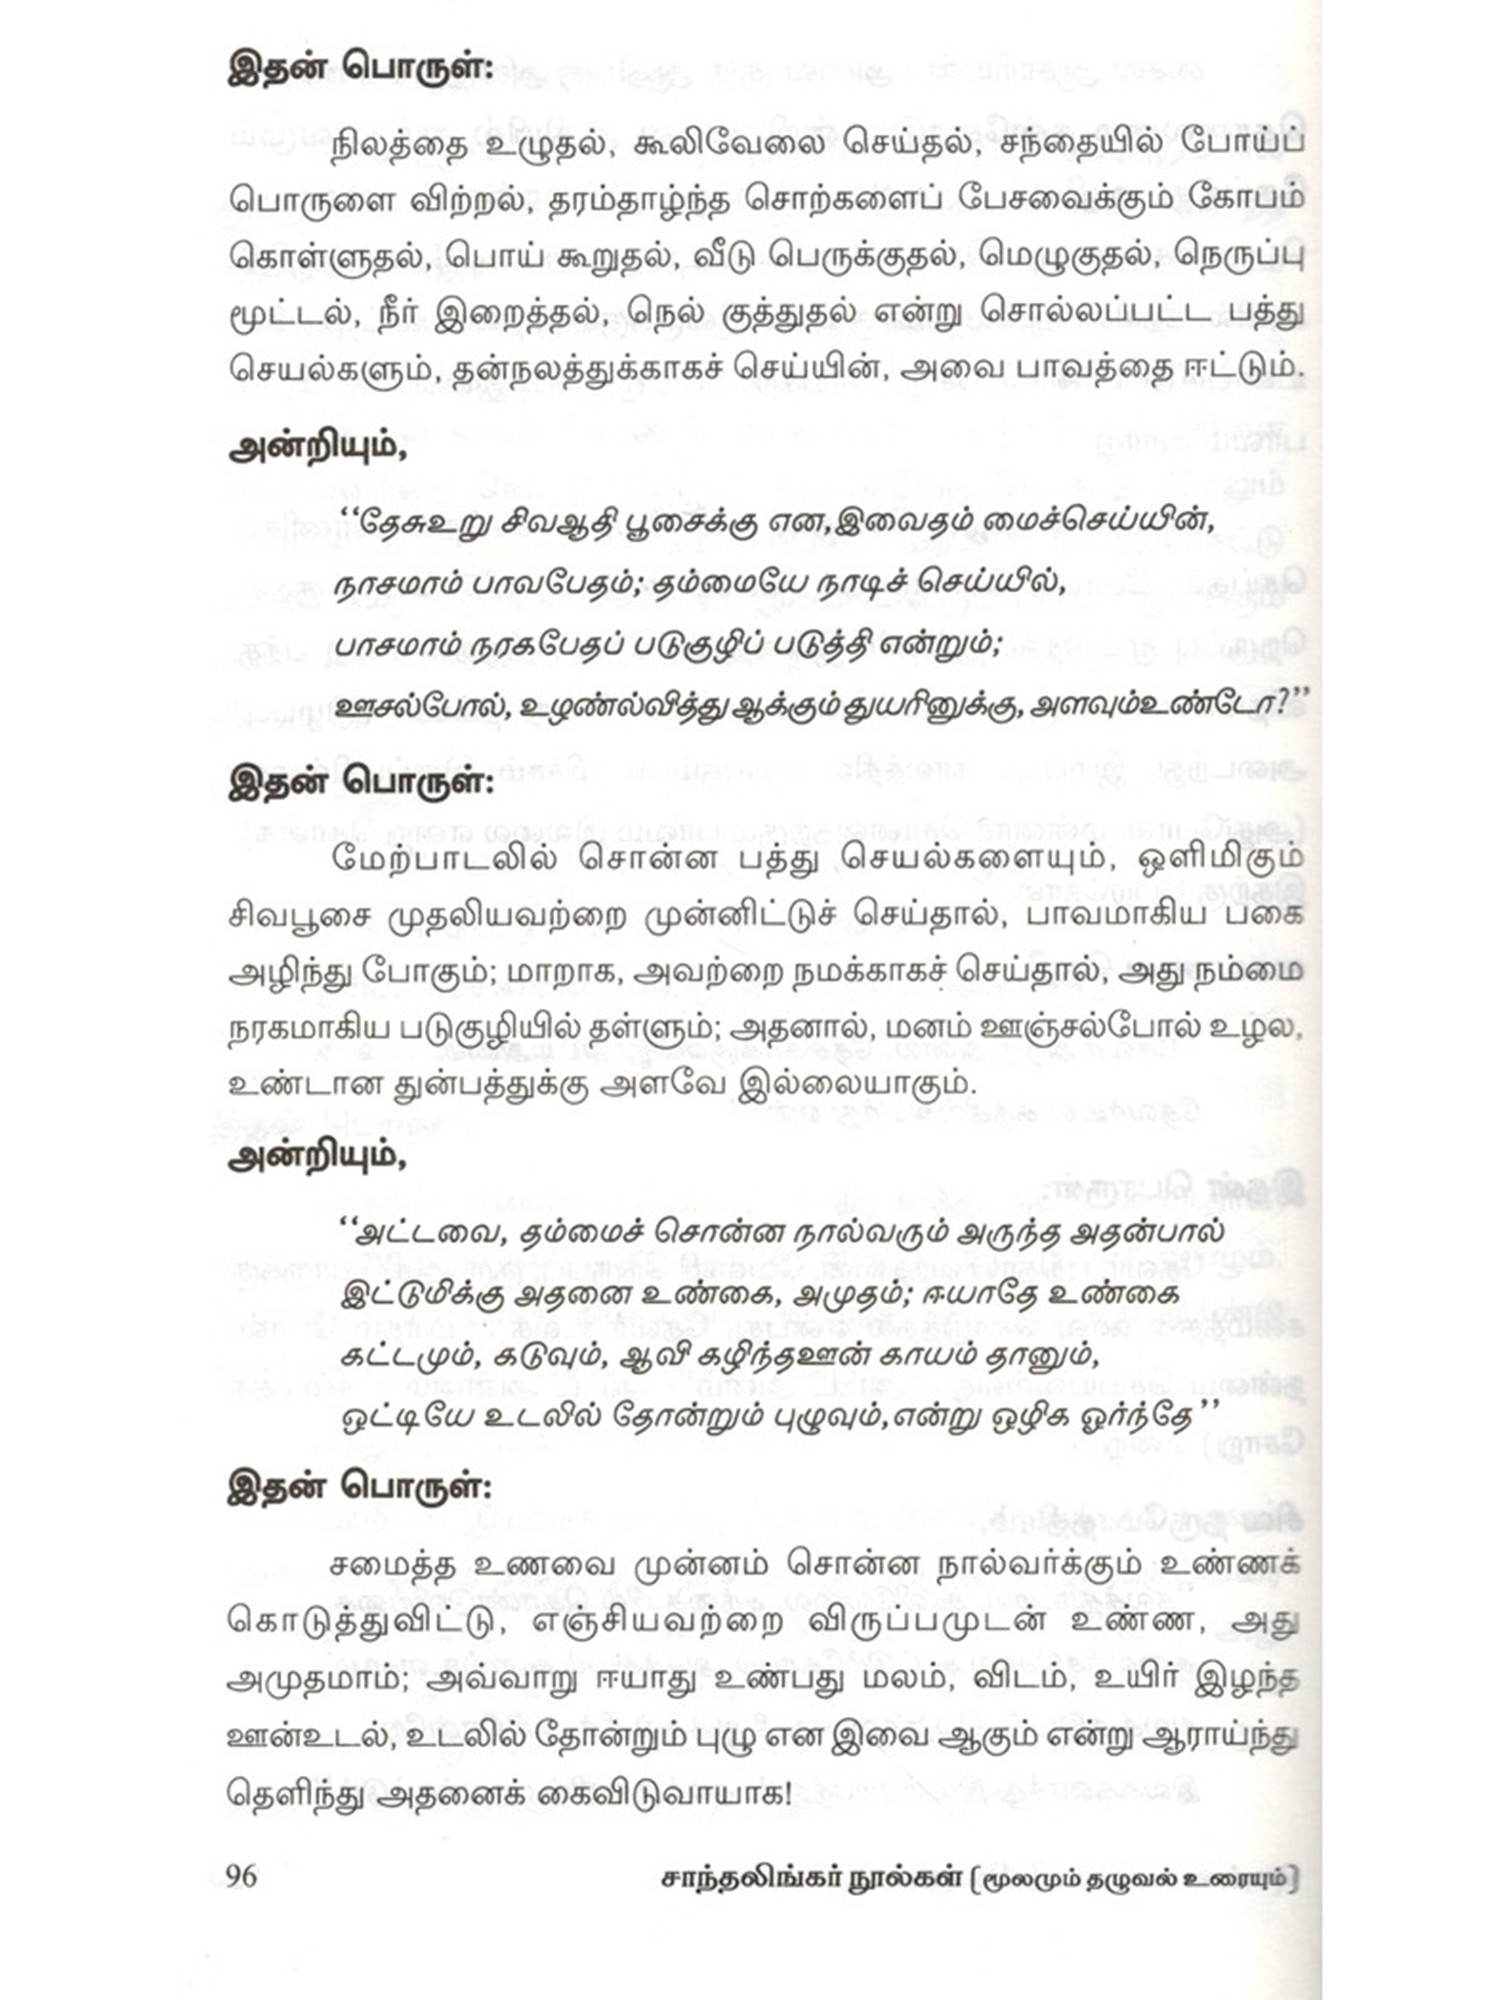 இதன் பொருள்:
நிலத்தை உழுதல், கூலிவேலை செய்தல், சந்தையில் போய்ப்
பொருளை விற்றல், தரம்தாழ்ந்த சொற்களைப் பேசவைக்கும் கோபம்
கொள்ளுதல், பொய் கூறுதல், வீடு பெருக்குதல், மெழுகுதல், நெருப்பு
மூட்டல், நீர் இறைத்தல், நெல் குத்துதல் என்று சொல்லப்பட்ட பத்து
செயல்களும், தன்நலத்துக்காகச் செய்யின், அவை பாவத்தை ஈட்டும்.
அன்றியும்,
‘‘தேசுஉறு சிவஆதி பூசைக்கு என,இவைதம் மைச்செய்யின்,
நாசமாம் பாவபேதம்; தம்மையே நாடிச் செய்யில்,
பாசமாம் நரகபேதப் படுகுழிப் படுத்தி என்றும்;
ஊசல்போல், உழண்ல்வித்து ஆக்கும் துயரினுக்கு, அளவும்உண்டோ?’’
இதன் பொருள்:
மேற்பாடலில் சொன்ன பத்து செயல்களையும், ஒளிமிகும்
சிவபூசை முதலியவற்றை முன்னிட்டுச் செய்தால், பாவமாகிய பகை
அழிந்து போகும்; மாறாக, அவற்றை நமக்காகச் செய்தால், அது நம்மை
நரகமாகிய படுகுழியில் தள்ளும்; அதனால், மனம் ஊஞ்சல்போல் உழல,
உண்டான துன்பத்துக்கு அளவே இல்லையாகும்.
அன்றியும்,
‘‘அட்டவை, தம்மைச் சொன்ன நால்வரும் அருந்த அதன்பால்
இட்டுமிக்கு அதனை உண்கை, அமுதம்; ஈயாதே உண்கை
கட்டமும், கடுவும், ஆவி கழிந்தஊன் காயம் தானும்,
ஒட்டியே உடலில் தோன்றும் புழுவும்,என்று ஒழிக ஓர்ந்தே’’
இதன் பொருள்:
சமைத்த உணவை முன்னம் சொன்ன நால்வர்க்கும் உண்ணக்
கொடுத்துவிட்டு, எஞ்சியவற்றை விருப்பமுடன் உண்ண, அது
அமுதமாம்; அவ்வாறு ஈயாது உண்பது மலம், விடம், உயிர் இழந்த
ஊன்உடல், உடலில் தோன்றும் புழு என இவை ஆகும் என்று ஆராய்ந்து
தெளிந்து அதனைக் கைவிடுவாயாக!
96 சாந்தலிங்கர் நூல்கள் (மூலமும் தழுவல் உரையும்)